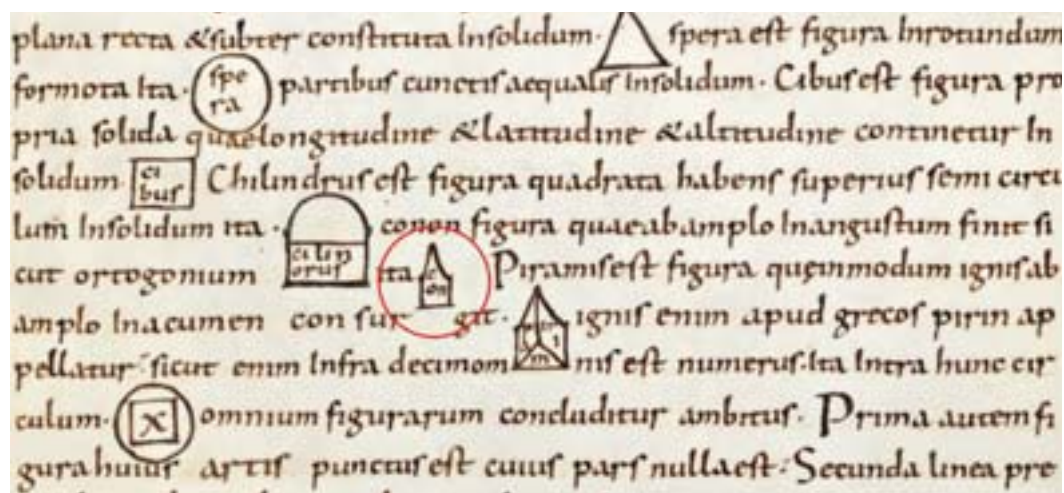 plana recta & subter constituta Insolidum. spera est figura Inrotundum
formota Ita. spe ra partibus cunctis aequalis Insolidum. Cibus est figura pro
pria solida quae longitudine & latitudine & altitudine continetur In
solidum ci bus Chilindrus est figura quadrata habens superius semi circu
lum Insolidum ita. cilin drus conon figura quae ab amplo Inangustum finit si
cut ortogonium ita con Piramis est figura quę inmodum ignis ab
amplo Inacumen con sur git. ignis enim apud grecos pirin ap
pellatur. sicut enim Infra decimom nis est numerus. Ita Intra hunc cir
culum. X omnium figurarum concluditur ambitus. Prima autem fi
gura huius artis punctus est cuius pars nulla est. Secunda linea pre